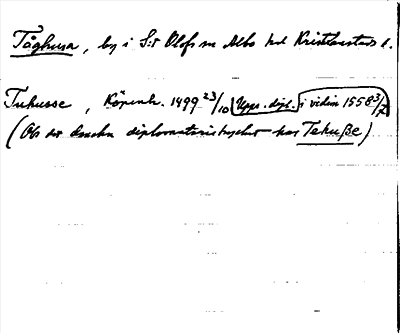 Tåghusa, by i S:t Olofs sn Albo hd Kristianstads l.
Tuhusse, Köpenh. 1499 23/10 (Upps. dipl. i vidim 1558 3/7
(Obs det danska diplomatariet har Tehuße)